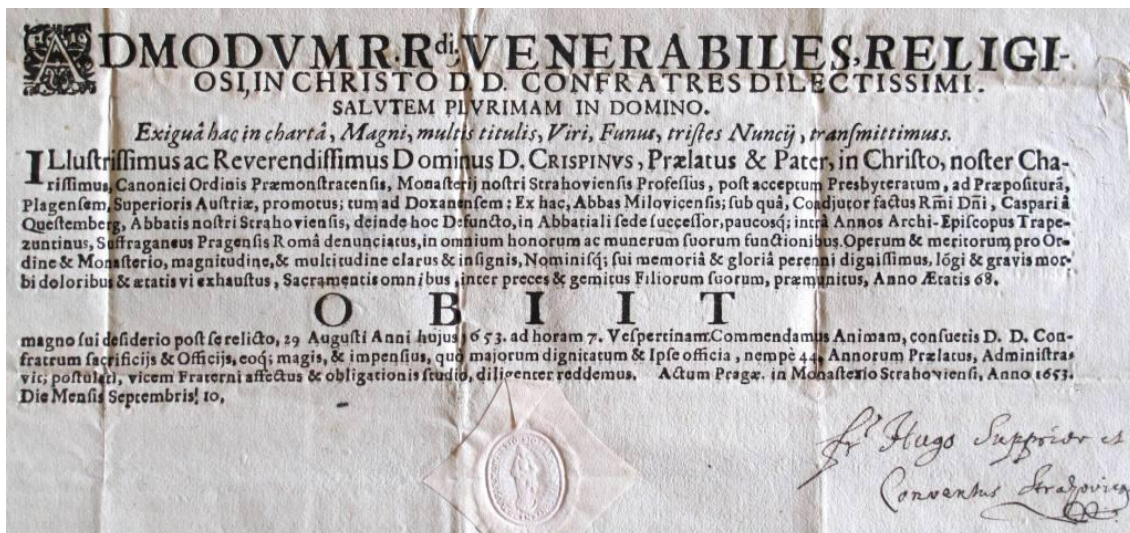 ADMODVM R.R.di. VENERABILES, RELIGI-
OSI, IN CHRISTO D.D. CONFRATRES DILECTISSIMI.
SALVTEM PLVRIMAM IN DOMINO.
Exiguâ hac in chartâ, Magni, multis titulis, Viri, Funus, tristes Nuncij, transmittimus.
ILlustrissimus ac Reverendissimus Dominus D. CRISPINVS, Prælatus & Pater, in Christo, noster Cha-
rissimus, Canonici Ordinis Præmonstratensis, Monasterij nostri Strahoviensis Professus, post acceptum Presbyteratum, ad Præpositurã,
Plagensem, Superioris Austriæ, promotus; tum ad Doxanensem: Ex hac, Abbas Milovicensis; sub quâ, Coadjutor factus Rm̃i Dñi, Caspari â
Questemberg, Abbatis nostri Strahoviensis, deinde hoc Defuncto, in Abbatiali sede successor, paucosq; intrâ Annos Archi-Episcopus Trape-
zuntinus, Suffraganeus Pragensis Româ denunciatus, in omnium honorum ac munerum suorum functionibus, Operum & meritorum, pro Or-
dine & Monasterio, magnitudine, & multitudine clarus & insignis, Nominisq; sui memoriâ & gloriâ perenni dignissimus, lõgi & gravis mor-
bi doloribus & ætatis vi exhaustus, Sacramentis omnibus, inter preces & gemitus Filiorum suorum, præmunitus, Anno Ætatis 68.
OBIIT
magno sui desiderio post se relicto, 29 Augusti Anni hujus, 1653. ad horam 7. Vespertinam. Commendamus Animam, consuetis D. D. Con-
fratrum sacrificijs & Officijs, eoq; magis, & impensius, quò majorum dignitatum & Ipse officia, nempè 44. Annorum Prælatus, Administra-
vit; postulati, vicem Fraterni affectus & obligationis studio, diligenter reddemus. Actum Pragæ. in Monasterio Strahoviensi, Anno 1653.
Die Mensis Septembris! 10,
fr. Hugo Supprior et
Conventus Strahovien